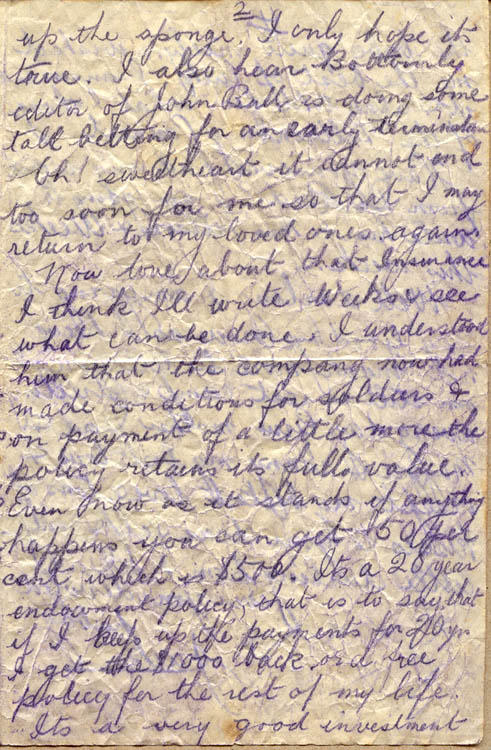 2
up the sponge. I only hope its
true. I also hear Bottomly
editor of John Bull is doing some
tall betting for an early termination
Oh! sweetheart it cannot end
too soon for me so that I may
return to my loved ones again.
Now love, about that Insurance
I think I'll write Weeks & see
what can be done. I understood
him that the company now had
made conditions for soldiers &
on payment of a little more the
policy retains its full value.
Even now as it stands if anything
happens you can get 50 per
cent which is $500. Its a 20 year
endowment policy, that is to say, that
if I keep up the payments for 20 yrs
I get the $1000 back or a free
policy for the rest of my life.
Its a very good investment